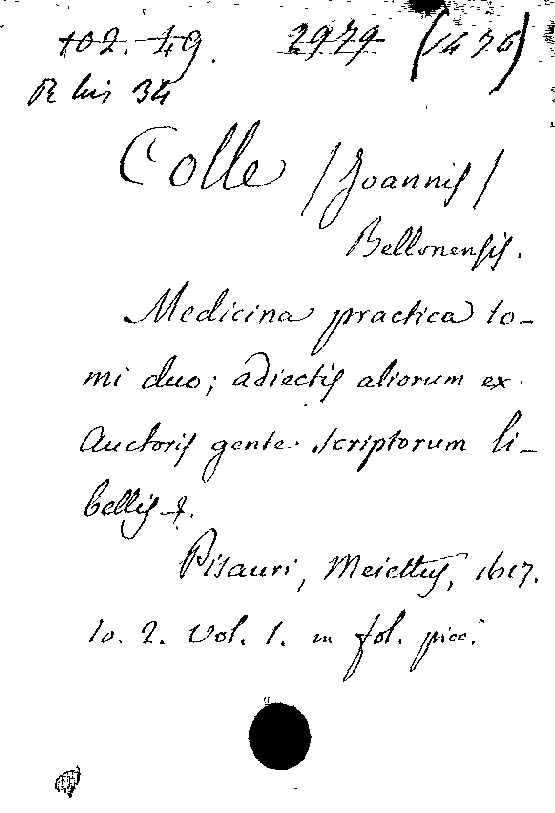 102. 49. 2979 (1476)
R bis 34
Colle /Joannis/
Bellonensis.
Medicina practica to-
mi duo; adiectis aliorum ex
Auctoris gente scriptorum li-
bellis &.
Pisauri, Meiettus, 1617.
to. 2. vol. 1. in fol. picc.